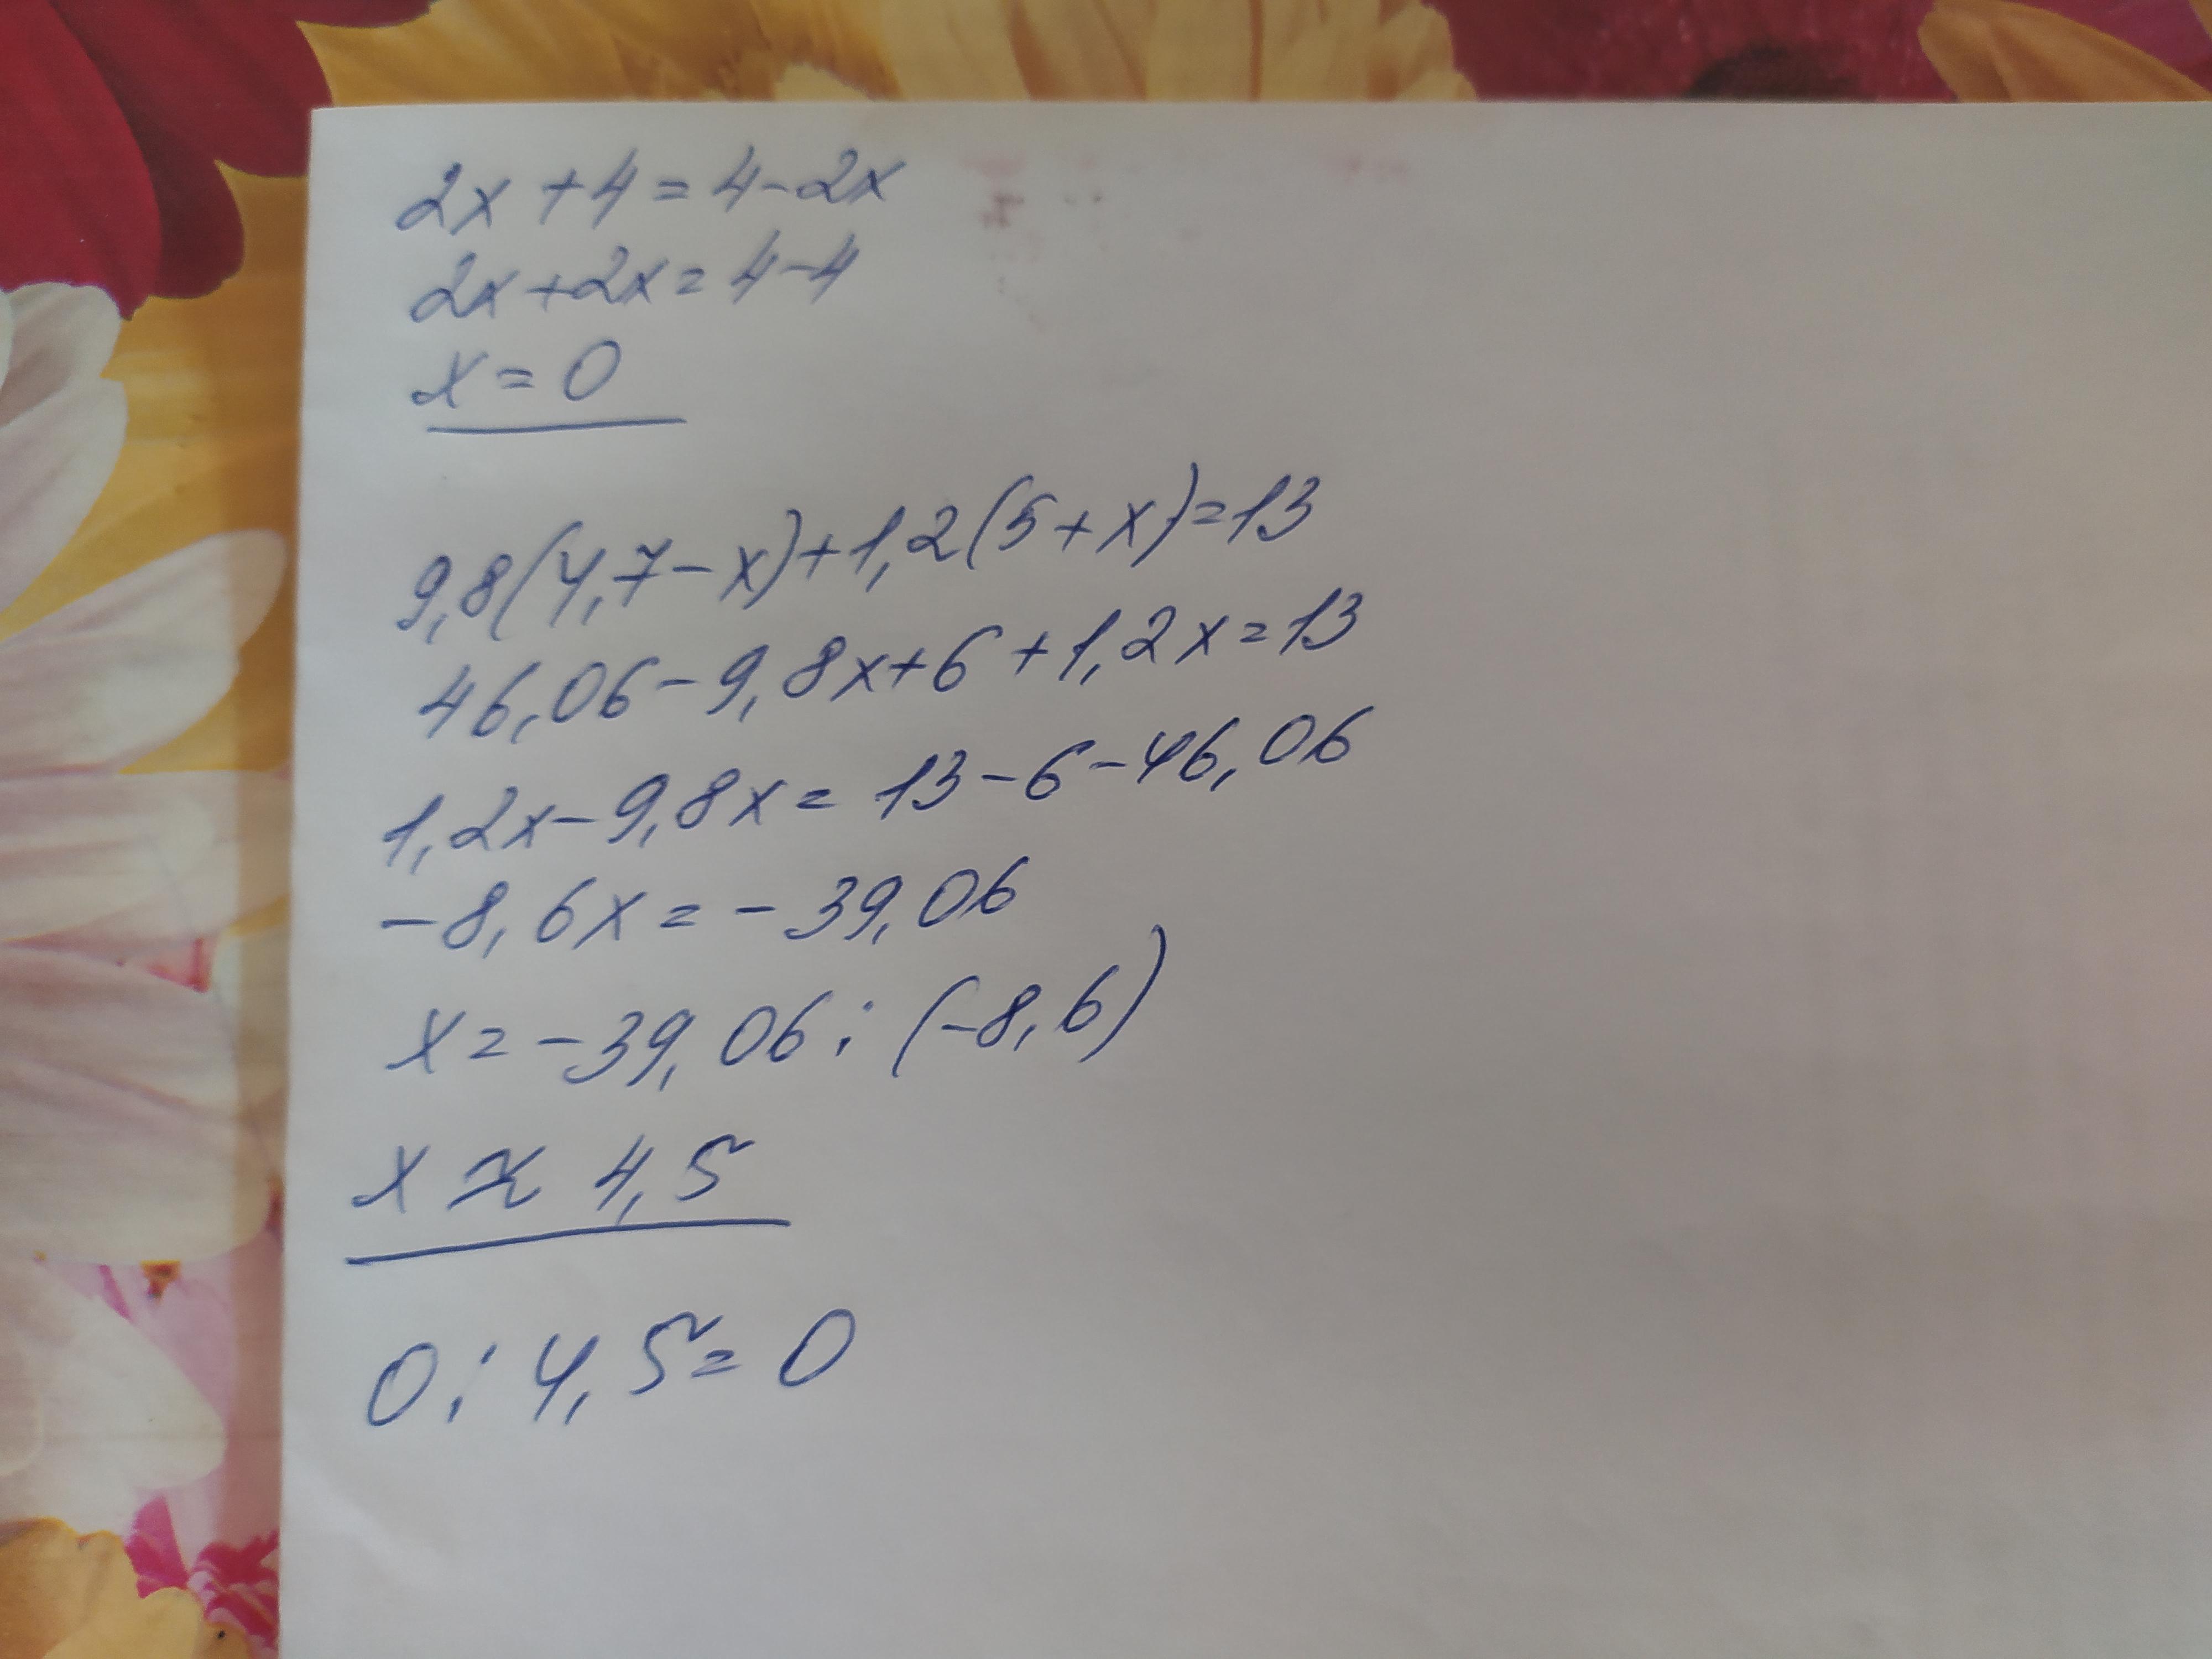 2x+4=4-2x
2x+2x=4-4
x=0
9,8(4,7-x)+1,2(5+x)=13
46,06-9,8x+6+1,2x=13
1,2x-9,8x=13-6-46,06
-8,6x=-39,06
x=-39,06:(-8,6)
x≈4,5
0:4,5=0